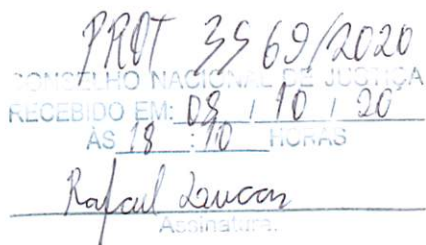 PROT 3569/2020
CONSELHO NACIONAL DE JUSTIÇA
RECEBIDO EM: 08 / 10 / 20
ÀS 18 : 10 HORAS
Rafael
Assinatura.